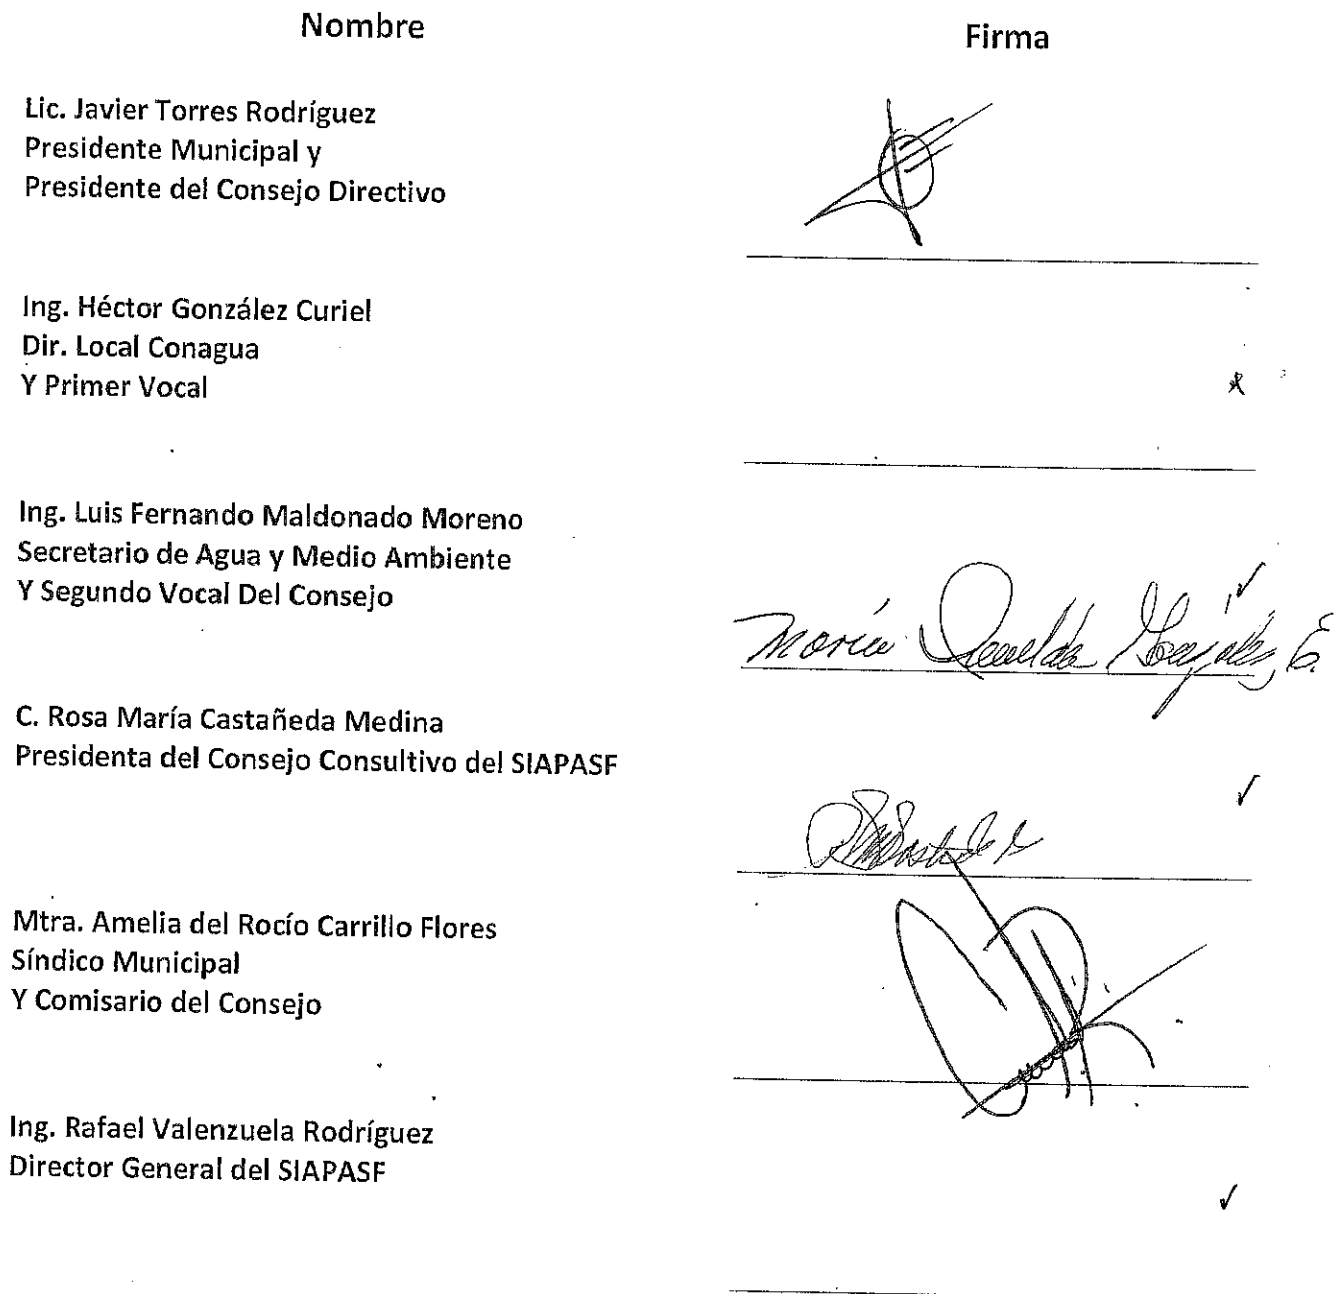 Nombre
Firma
Lic. Javier Torres Rodríguez
Presidente Municipal y
Presidente del Consejo Directivo
Ing. Héctor González Curiel
Dir. Local Conagua
Y Primer Vocal
Ing. Luis Fernando Maldonado Moreno
Secretario de Agua y Medio Ambiente
Y Segundo Vocal Del Consejo
María González E.
C. Rosa María Castañeda Medina
Presidenta del Consejo Consultivo del SIAPASF
Mtra. Amelia del Rocío Carrillo Flores
Síndico Municipal
Y Comisario del Consejo
Ing. Rafael Valenzuela Rodríguez
Director General del SIAPASF